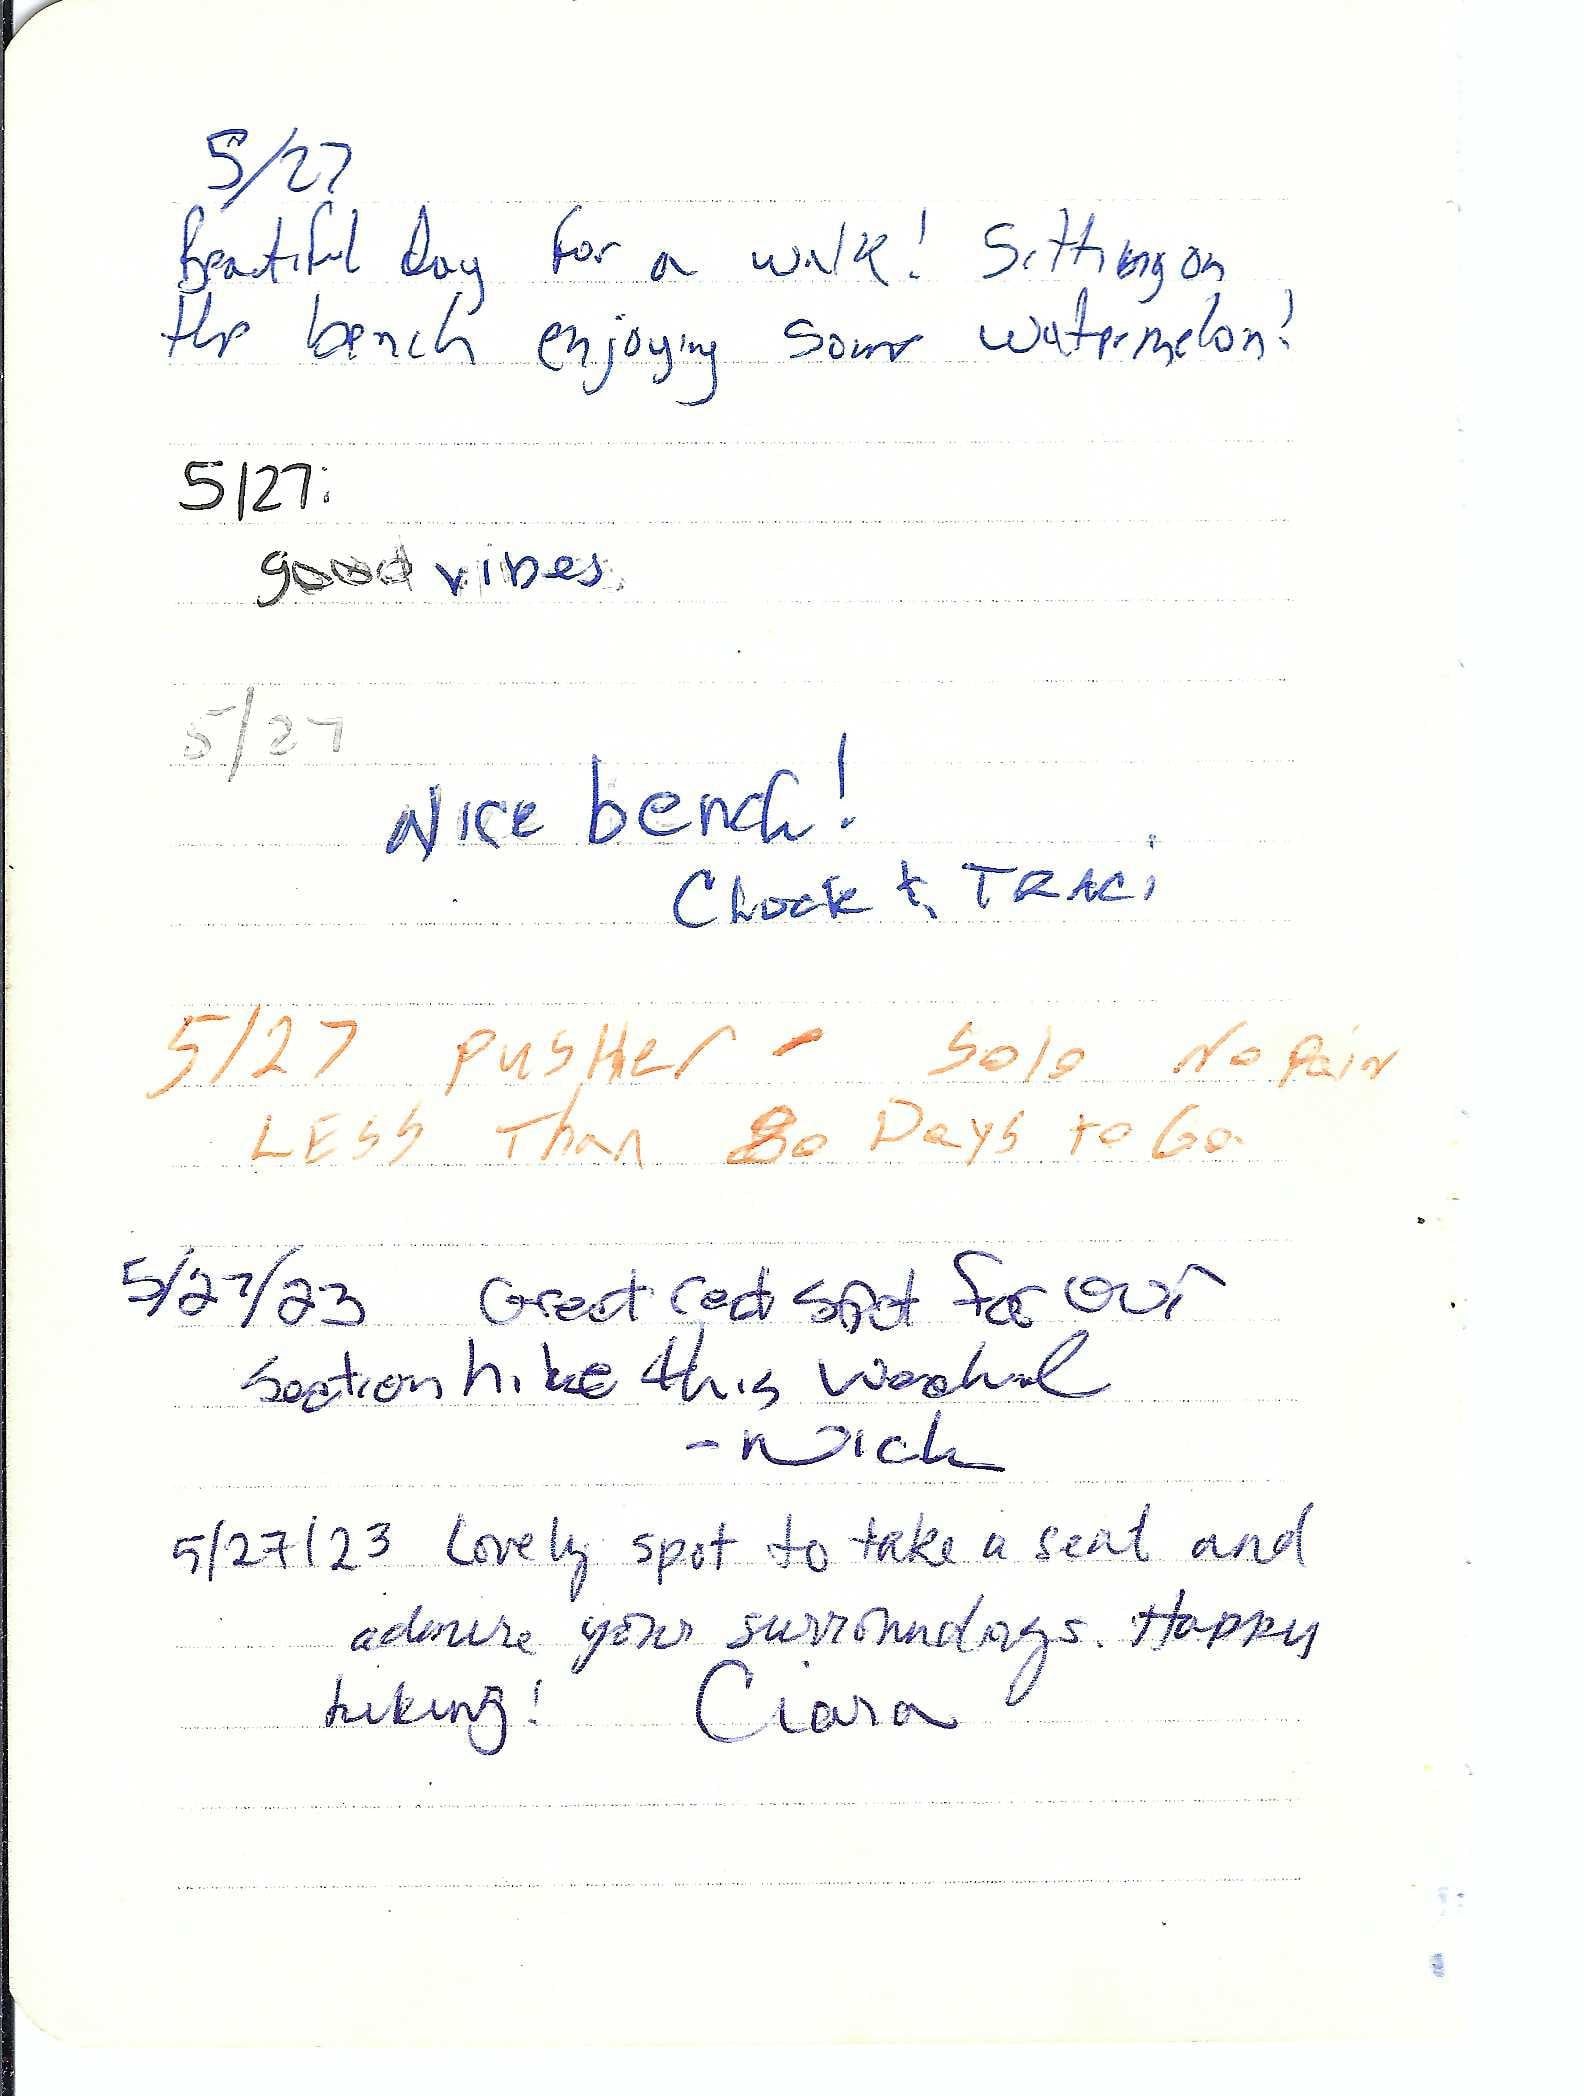 5/27
Beautiful Day for a walk! Sitting on
the bench enjoying some watermelon!
5/27:
good vibes.
5/27
Nice bench!
Chuck & TRACi
5/27 PUSHer - Solo No Pain
LESS Than 80 Days to Go
5/27/23 Great rest spot for our
section hike this weekend
- Nick
5/27/23 Lovely spot to take a seat and
admire your surroundings. Happy
hiking! Ciara